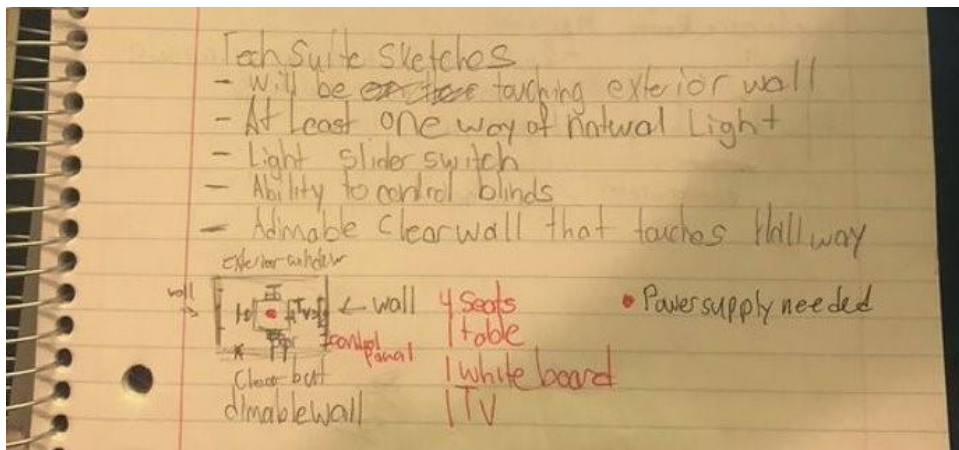 Tech Suite Sketches
- Will be touching exterior wall
- At Least one way of natural Light
- Light slider switch
- Ability to control blinds
- Adimable Clear wall that touches Hallway
Exterior window
wall
← wall
Control Panal
Door
Clear but
dimable wall
4 Seats
1 table
1 white board
1 TV
• Power supply needed